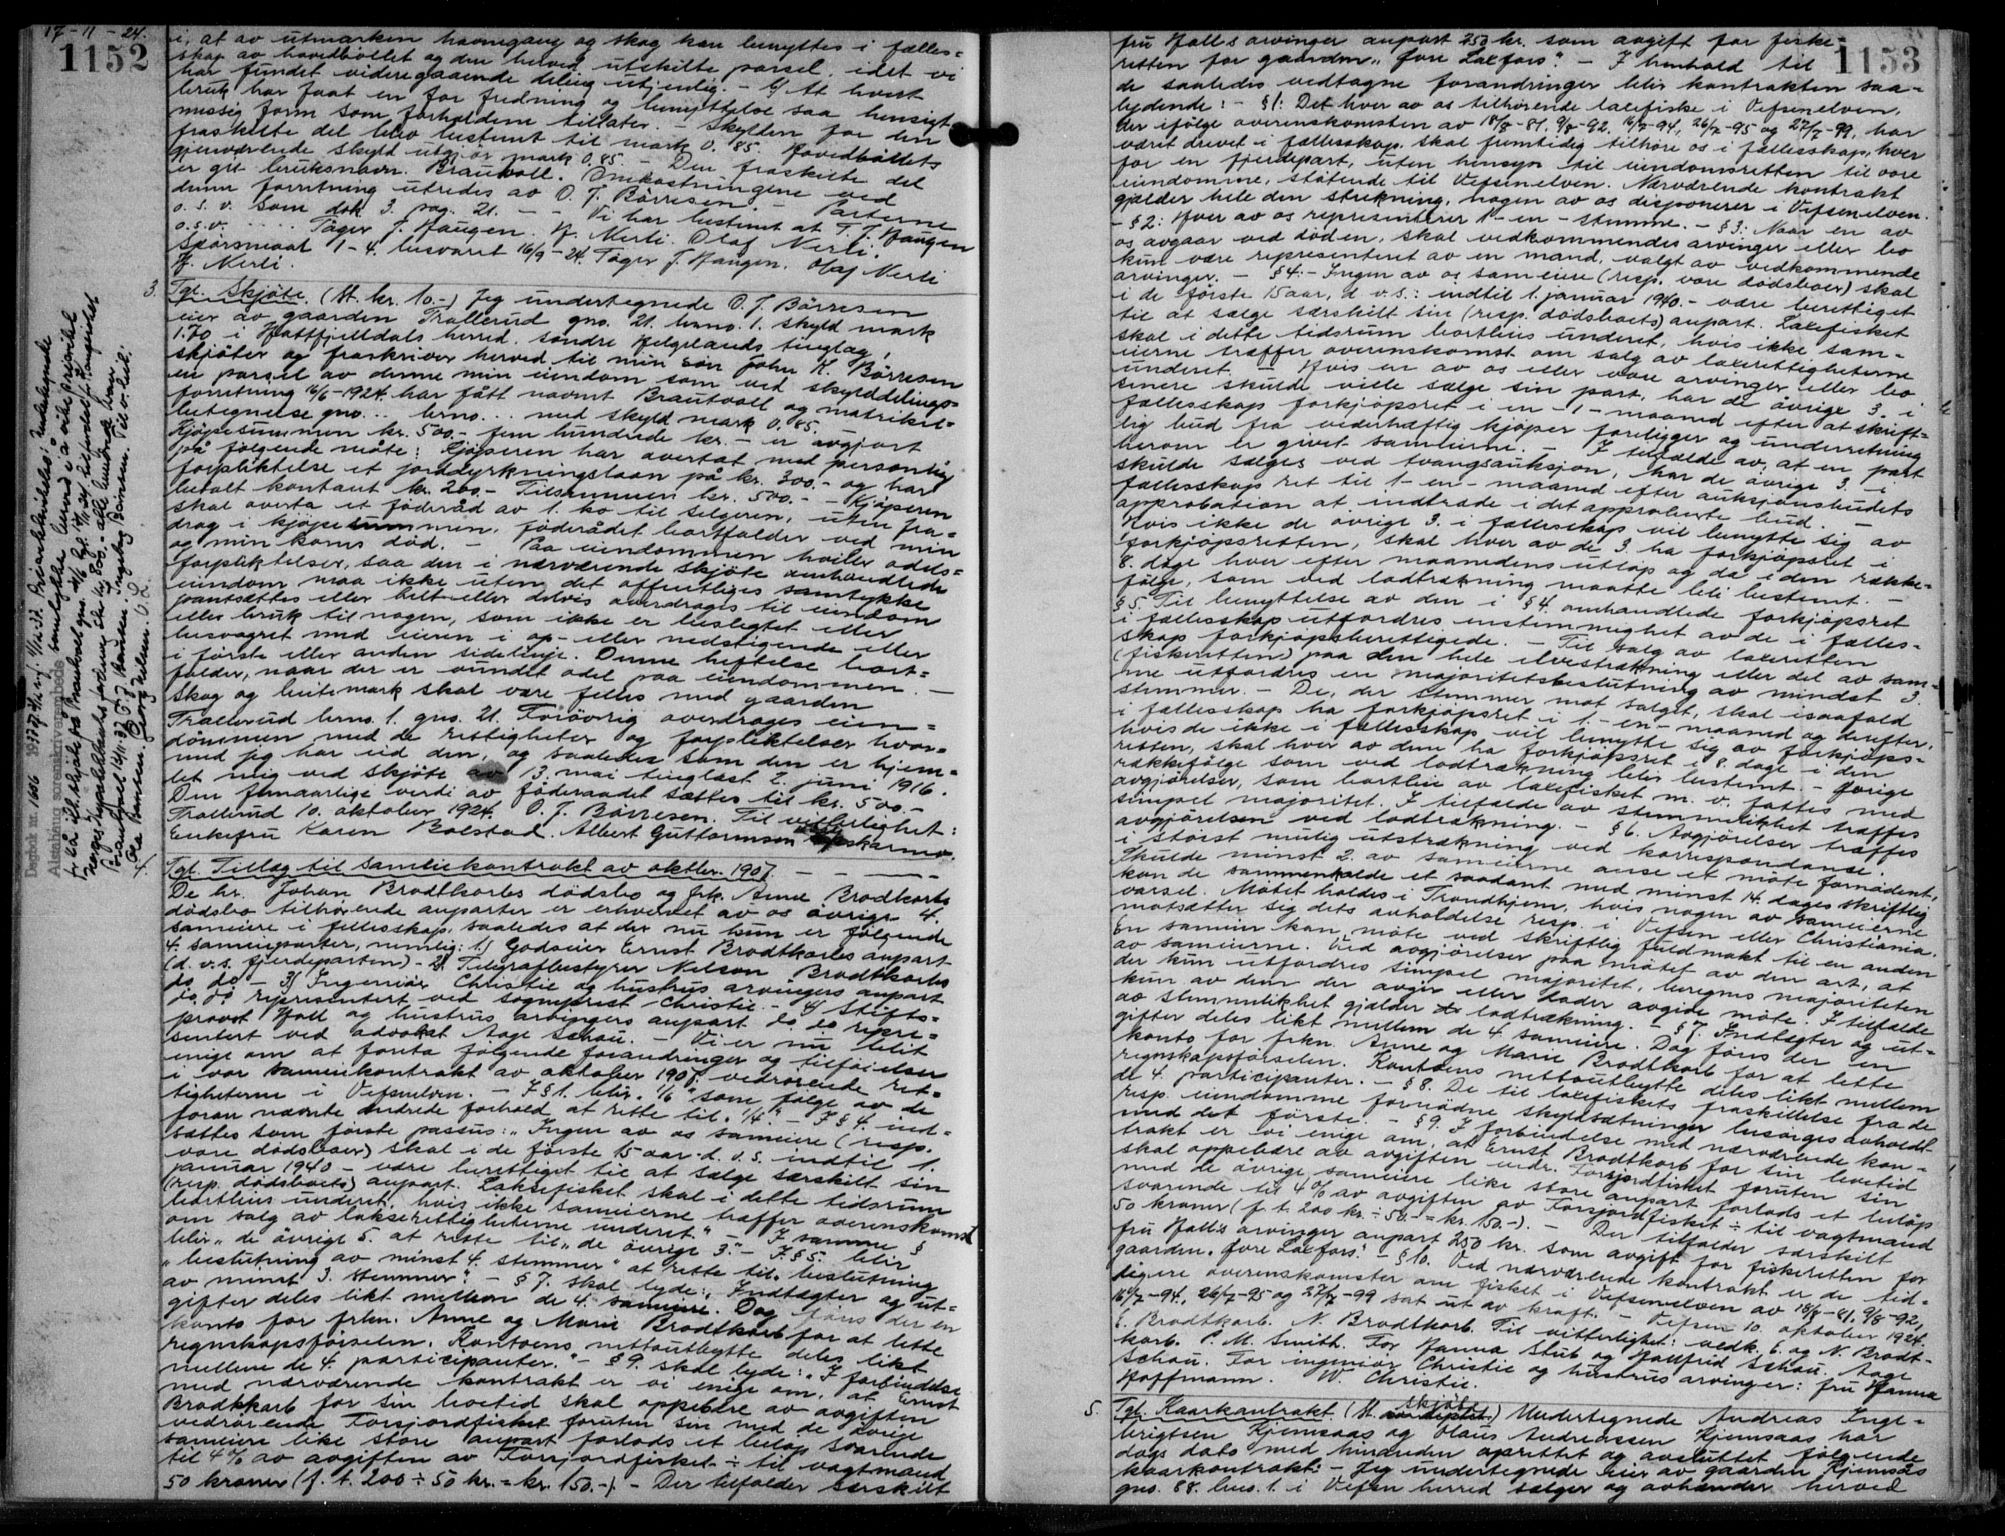 17-11-24.
1152
i, at av utmarken havnegang og skog kan benyttes i fælles-
skap av hovedbøllet og den herved utskilte parsel, idet vi
har fundet videregaaende deling utjenlig. - At hvert
bruk har faat en for fredning og benyttelse saa hensigts-
mæssig form som forholdene tillater. - Skylden for den
fraskilte del blev bestemt til mark 0.85 Hovedbøllets
gjenværende skyld utgjør mark 0,85. - Den fraskilte del
er git bruksnavn: Brautvoll. Omkostningene ved
denne forretning utredes av O. J. Børresen - Parterne
o.s.v. som dok 3. pag. 21. - - Vi har bestemt at T. J. Haugen
o.s.v. .... Tøger J. Haugen. H. Nerli. Olaf Nerli.
Spørsmaal 1-4. besvaret 16/9-24. Tøger J. Haugen. Olaf Nerli
H. Nerli.
3. Tgl. Skjøte. (St. kr. 10.-) Jeg undertegnede O. J. Børresen
eier av gaarden Trallerud gno. 21. brno. 1. skyld mark
1.70 i Hatfjelldals herred, søndre Helgelands tinglag,
skjøter og fraskriver herved til min søn John K. Børresen
en parsel av denne min eiendom som ved skylddelings-
forretning 16/6-1924 har fått navnet Brautvoll og matrikel-
betegnelse gno. .. brno. .. med skyld mark 0,85.
Kjøpesummen kr. 500.- fem hundrede kr. - er avgjort
på følgende måte: Kjøperen har overtat med personlig
forpliktelse et jorddyrkningslaan på kr. 300.- og har
betalt kontant kr. 200.- Tilsammen kr. 500.- - Kjøperen
skal overta et føderåd av 1. ko til selgeren, uten fra-
drag i kjøpesummen, føderådet bortfalder ved min
og min kones død. - Paa eiendommen hviler odels-
forpliktelser, saa den i nærværende skjøte omhandlede
eiendom maa ikke uten det offentliges samtykke
pantsættes eller helt eller delvis overdrages til eiendom
eller bruk til nogen, som ikke er beslegtet eller
besvogret med eieren i op- eller nedstigende eller
i første eller anden sidelinje. Denne heftelse bort-
falder, naar der er vundet odel paa eiendommen. -
Skog og beitemark skal være felles med gaarden
Trallerud brno. 1. gno. 21. Forøvrig overdrages eien-
dommen med de rettigheter og forpliktelser hvor-
med jeg har eid den, og saaledes som den er hjem-
let mig ved skjøte av 13. mai tinglæst 2. juni 1916.
Den femaarlige verdi av føderaadet sættes til kr. 500.-
Trallerud 10. oktober 1924. O. J. Børresen. Til vitterlighet:
Enkefru Karen Bolstad. Albert Guttormsen
4. Tgl. Tillæg til sameiekontrakt av oktbr. 1907.
De hr. Johan Brodtkorbs dødsbo og frk. Anne Brodtkorbs
dødsbo tilhørende anparter er erhvervet av os øvrige 4.
sameiere i fellesskap, saaledes at der nu kun er følgende
4. sameieparter, nemlig: 1) Godseier Ernst Brodtkorbs anpart
(d.v.s. fjerdeparten) - 2) Telegrafbestyrer Nelson Brodtkorbs
do. do. - 3) Ingeniør Christie og hustrus arvingers anpart
do. do. representert ved sogneprest Christie. - 4) Stifts-
provst Hall og hustrus arvingers anpart do. do. repre-
sentert ved advokat Aage Schou. - Vi er nu blit
enige om at foreta følgende forandringer og tilføielser
i vor sameiekontrakt av oktober 1907. vedrørende ret-
tigheterne i Vefsnelven. - I § 1. blir „1/6“ som følge av de
foran nævnte ændrede forhold at rette til „1/4“. - I § 4. ind-
sættes som første passus: „Ingen av os sameiere (resp.
vore dødsboer) skal i de første 15 aar d. v. s. indtil 1.
januar 1940 - være berettiget til at sælge særskilt sin
(resp. dødsboets) anpart. Laksefisket skal i dette tidsrum
bortleies underet, hvis ikke sameierne træffer overenskomst
om salg av lakserettigheterne underet." - I samme §
blir „de øvrige 5. at rette til „de øvrige 3." - I § 5. blir
„beslutning av minst 4. stemmer" at rette til „beslutning
av minst 3. stemmer". - § 7. skal lyde: „Indtægter og ut-
gifter deles likt mellem de 4. sameiere. Dog føres der en
konto for frkn. Anne og Marie Brodtkorb for at lette
regnskapsførselen. Kontoens nettoutbytte deles likt
mellem de 4. participanter." - § 9. skal lyde: „I forbindelse
med nærværende kontrakt er vi enige om, at Ernst
Brodtkorb for sin levetid skal oppebære av avgiften
vedrørende Forsjordfisket foruten sin med de øvrige
sameiere like store anpart forlods et beløp svarende
til 4% av avgiften av Forsjordfisket ÷ til vagtmand
50 kroner (f. t. 200 ÷ 50 kr. = kr. 150.-). - Der tilfalder særskilt
Dagbok nr. 1686 1937
Alstahaug sorenskriverembede
1153
fru Halls arvinger anpart 250 kr. som avgift for fiske-
retten for gaarden „Øvre Laxfors". - I henhold til
de saaledes vedtagne forandringer blir kontrakten saa-
lydende: - § 1: Det hver av os tilhørende laxefiske i Vefsenelven,
der ifølge overenskomsten av 18/8-81, 9/8-92, 16/7-94, 26/7-95 og 27/7-99, har
været drevet i fællesskap, skal fremtidig tilhøre os i fællesskap, hver
for en fjerdepart, uten hensyn til eiendomsretten til vore
eiendomme, støtende til Vefsenelven. Nærværende kontrakt
gjælder hele den strekning, nogen av os disponerer i Vefsenelven.
- § 2: Hver av os representerer 1-en-stemme. - § 3: Naar en av
os avgaar ved døden, skal vedkommendes arvinger eller bo
kun være representeret av en mand, valgt av vedkommende
arvinger. - § 4: - Ingen av os sameiere (resp. vore dødsboer) skal
i de første 15 aar, d v.s.: indtil 1. januar 1940. - være berettiget
til at sælge særskilt sin (resp. dødsboets) anpart. Laxefisket
skal i dette tidsrum bortleies underet, hvis ikke sam-
eierne træffer overenskomst om salg av laxerettigheterne
underet. - Hvis en av os eller vore arvinger eller bo
senere skulde ville sælge sin part, har de øvrige 3. i
fællesskap forkjøpsret i en -1- maaned efter at skrift-
lig bud fra vederhæftig kjøper foreligger og underretning
herom er givet sameierne. - I tilfælde av, at en part
skulde sælges ved tvangsauksjon, har de øvrige 3. i
fællesskap ret til 1-en-maaned efter auksjonsbudets
approbation at indtræde i det approberte bud. -
Hvis ikke de øvrige 3. i fællesskap vil benytte sig av
forkjøpsretten, skal hver av de 3. ha forkjøpsret i
8. dage hver efter maanedens utløp og da i den række-
følge, som ved lodtrækning maatte bli bestemt. -
§ 5. Til benyttelse av den i § 4. omhandlede forkjøpsret
i fællesskap utfordres enstemmighet av de i fælles-
skap forkjøpsberettigede. - Til salg av laxeretten
(fiskeretten) paa den hele elvestrækning eller del av sam-
me utfordres en majoritetsbeslutning av mindst 3.
stemmer. - De, der stemmer mot salget, skal isaafald
i fællesskap ha forkjøpsret i 1-en-maaned og derefter,
hvis de ikke i fællesskap vil benytte sig av forkjøps-
retten, skal hver av dem ha forkjøpsret i 8. dage i den
rækkefølge som ved lodtrækning blir bestemt. - Øvrige
avgjørelser, som bortleie av laxefisket m. v. fattes med
simpel majoritet. I tilfælde av stemmelikhet træffes
avgjørelsen ved lodtrækning. - § 6. Avgjørelser træffes
i størst mulig utstrækning ved korrespondanse.
Skulde minst 2. av sameierne anse et møte fornødent,
kan de sammenkalde et saadant med minst 14. dages skriftlig
varsel. Møtet holdes i Trondhjem, hvis nogen av sameierne
motsætter sig dets avholdelse resp. i Vefsen eller Christiania.
En sameier kan møte ved skriftlig fuldmakt til en anden
av sameierne. Ved avgjørelser paa møtet av den art, at
der kun utfordres simpel majoritet, beregnes majoriteten
kun av dem der avgir eller lader avgive møte. I tilfælde
av stemmelikhet gjælder lodtrækning. - § 7. Indtægter og ut-
gifter deles likt mellem de 4 sameiere. Dog føres der en
konto for frkn. Anne og Marie Brodtkorb for at lette
regnskapsførselen. Kontoens nettoutbytte deles likt mellem
de 4. participanter. - § 8. De til laxefiskets fraskillelse fra de
resp. eiendomme fornødne skyldsætninger besørges avholdt
med det første. - § 9. I forbindelse med nærværende kon-
trakt er vi enige om, at Ernst Brodtkorb for sin levetid
skal oppebære av avgiften vedr. Forsjordfisket foruten sin
med de øvrige sameiere like store anpart forlods et beløp
svarende til 4% av avgiften av Forsjordfisket ÷ til vagtmand
50 kroner (f t. 200 kr. ÷ 50.- = kr. 150.-). - Der tilfalder særskilt
fru Halls arvinger anpart 250 kr. som avgift for fiskeretten for
gaarden „Øvre Laxfors". - § 10. Ved nærværende kontrakt er de tid-
ligere overenskomster om fisket i Vefsenelven av 18/8-81, 9/8-92,
16/7-94, 26/7-95 og 27/7-99 sat ut av kraft. - Vefsen 10. oktober 1924.
E. Brodtkorb. N. Brodtkorb. Til vitterlighet: vedk. E. og N. Brodt-
korb. P. M. Smith. For Hanna Stub og Hallfrid Schou. Aage
Schou. For ingeniør Christie og hustrus arvinger: fru Hanna
Hoffmann. W. Christie.
5. Tgl. Kaarkontrakt (St. skjøte) Undertegnede Andreas Inge-
brigtsen Kjemsaas og Olaus Andreassen Kjemsaas har
dags dato med hinanden oprettet og avsluttet følgende
kaarkontrakt: - Jeg undertegnede eier av gaarden Kjemsås
gno. 88. brno. 1. i Vefsen herred sælger og avhænder herved